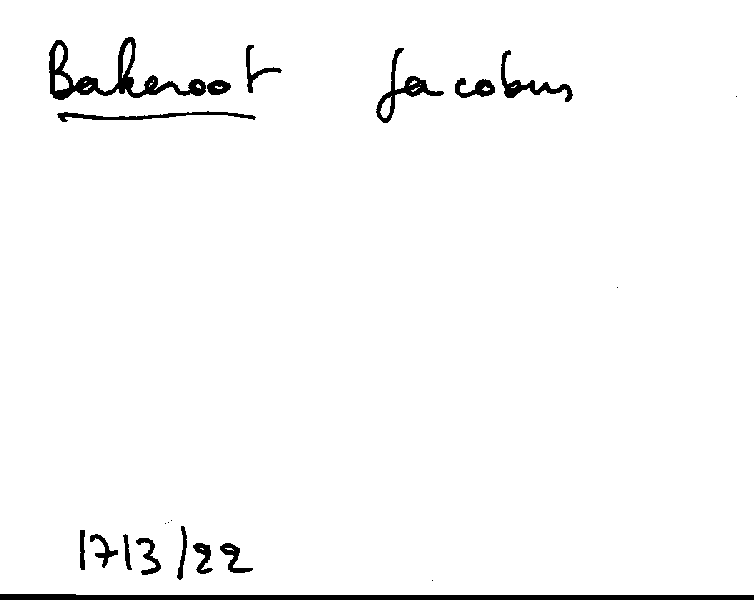 Bakeroot Jacobus
1713/22